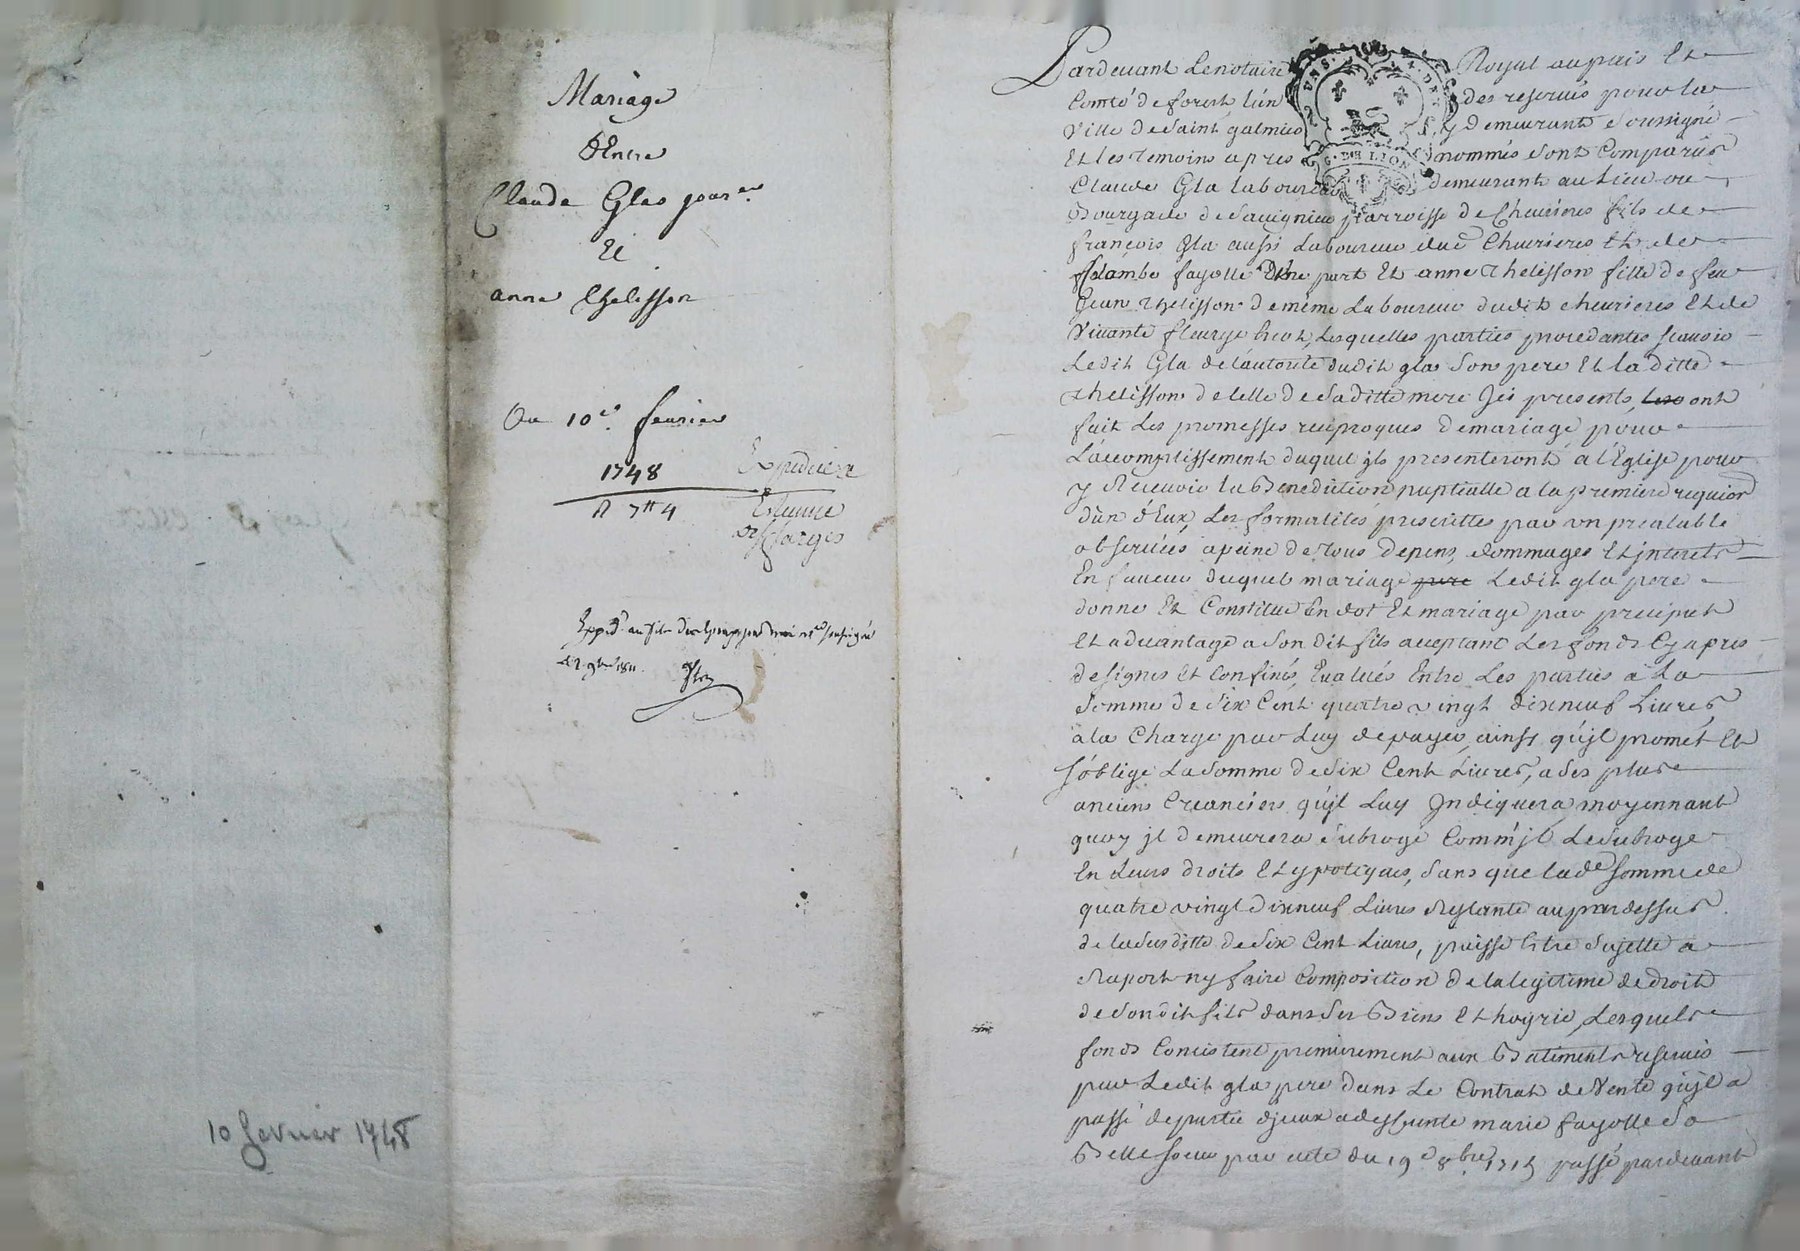 Mariage
D'Entre
Claude Glas
Et
anne Thelisson
Du 10e. fevrier
1748
R 7tt 4
Expediée
10 fevrier 1748
Pardevant Le notaire Royal au païs Et
Comté de forest l'un des reservés pour la
Ville de Saint galmier y demeurant soussigné
Et les Temoins apres nommés sont Comparus
Claude Gla laboureur demeurant au Lieu ou
Bourgade de Savignieu parroisse de Cheurieres fils de
françois Gla aussi Laboureur dud Cheurieres Et de
fayolle D'Une part Et anne Thelisson fille de feu
Jean Thelisson de même Laboureur dudit cheurieres Et de
Vivante fleurye Lesquelles parties procedantes scavoir
Ledit Gla de l'autorité dudit gla Son pere Et la ditte
Thelisson de Celle de Sa ditte mere Jci presents, ont
fait Les promesses reciproques de mariage pour
L'accomplissement duquel jls presenteront a l'Eglise pour
y Recevoir la Benediction nuptialle a la premiere requion
d'un d'Eux, Les formalités prescrittes par un prealable
observées a peine de tous depens, dommages Et jnterets
En faveur duquel mariage pere Ledit gla pere
donne Et Constitue En dot Et mariage par preciput
Et advantage a Son dit fils acceptant Les fonds Cy apres
designés Et Confinés, Evalués Entre Les parties a La
Somme de Six Cent quatre vingt dixneuf Livres
a la Charge par Luy de payer ainsy qu'jl promet Et
s'oblige La Somme de Six Cent Livres, a Ses plus
anciens Creanciers qu'jl Luy Jndiquera moyennant
quoy jl demeurera Subrogé Comm'jl Le Subroge
En Leurs droits Et ypoteques, Sans que lade Somme de
quatre vingt dixneuf Livres Restante au pardessus
de la Susditte de Six Cent Livres, puisse Etre Sujette a
Raport ny faire Composition de la legitime de droit
de Son dit fils dans Ses Biens Et hoyrie, Lesquels
fonds Consistent premierement aux Batiments reservés
par Ledit gla pere dans Le Contrat de Vente qu'jl a
passé de partie d'jceux a deffunte marie fayolle Sa
Belle Soeur par acte du 19e 8bre 1715 passé pardevant